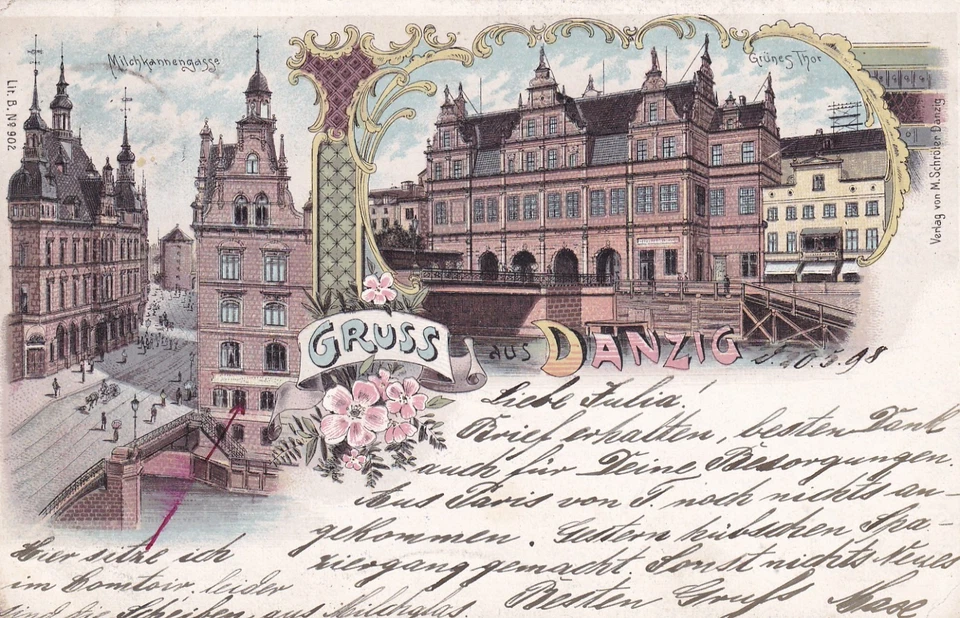 Milchkannengasse
Grünes Thor
Lit. B. Nº 902
Verlag von M. Schröter Danzig
GRUSS
aus DANZIG
98
Liebe Julia!
Brief erhalten, besten Dank
auch für Deine Besorgungen.
Aus Paris von T. noch nichts an-
gekommen. Gestern hübschen Spa-
ziergang gemacht Sonst nichts Neues
Besten Gruß
Hier sitze ich
im Comtoir, leider
sind die Scheiben aus Milchglas.